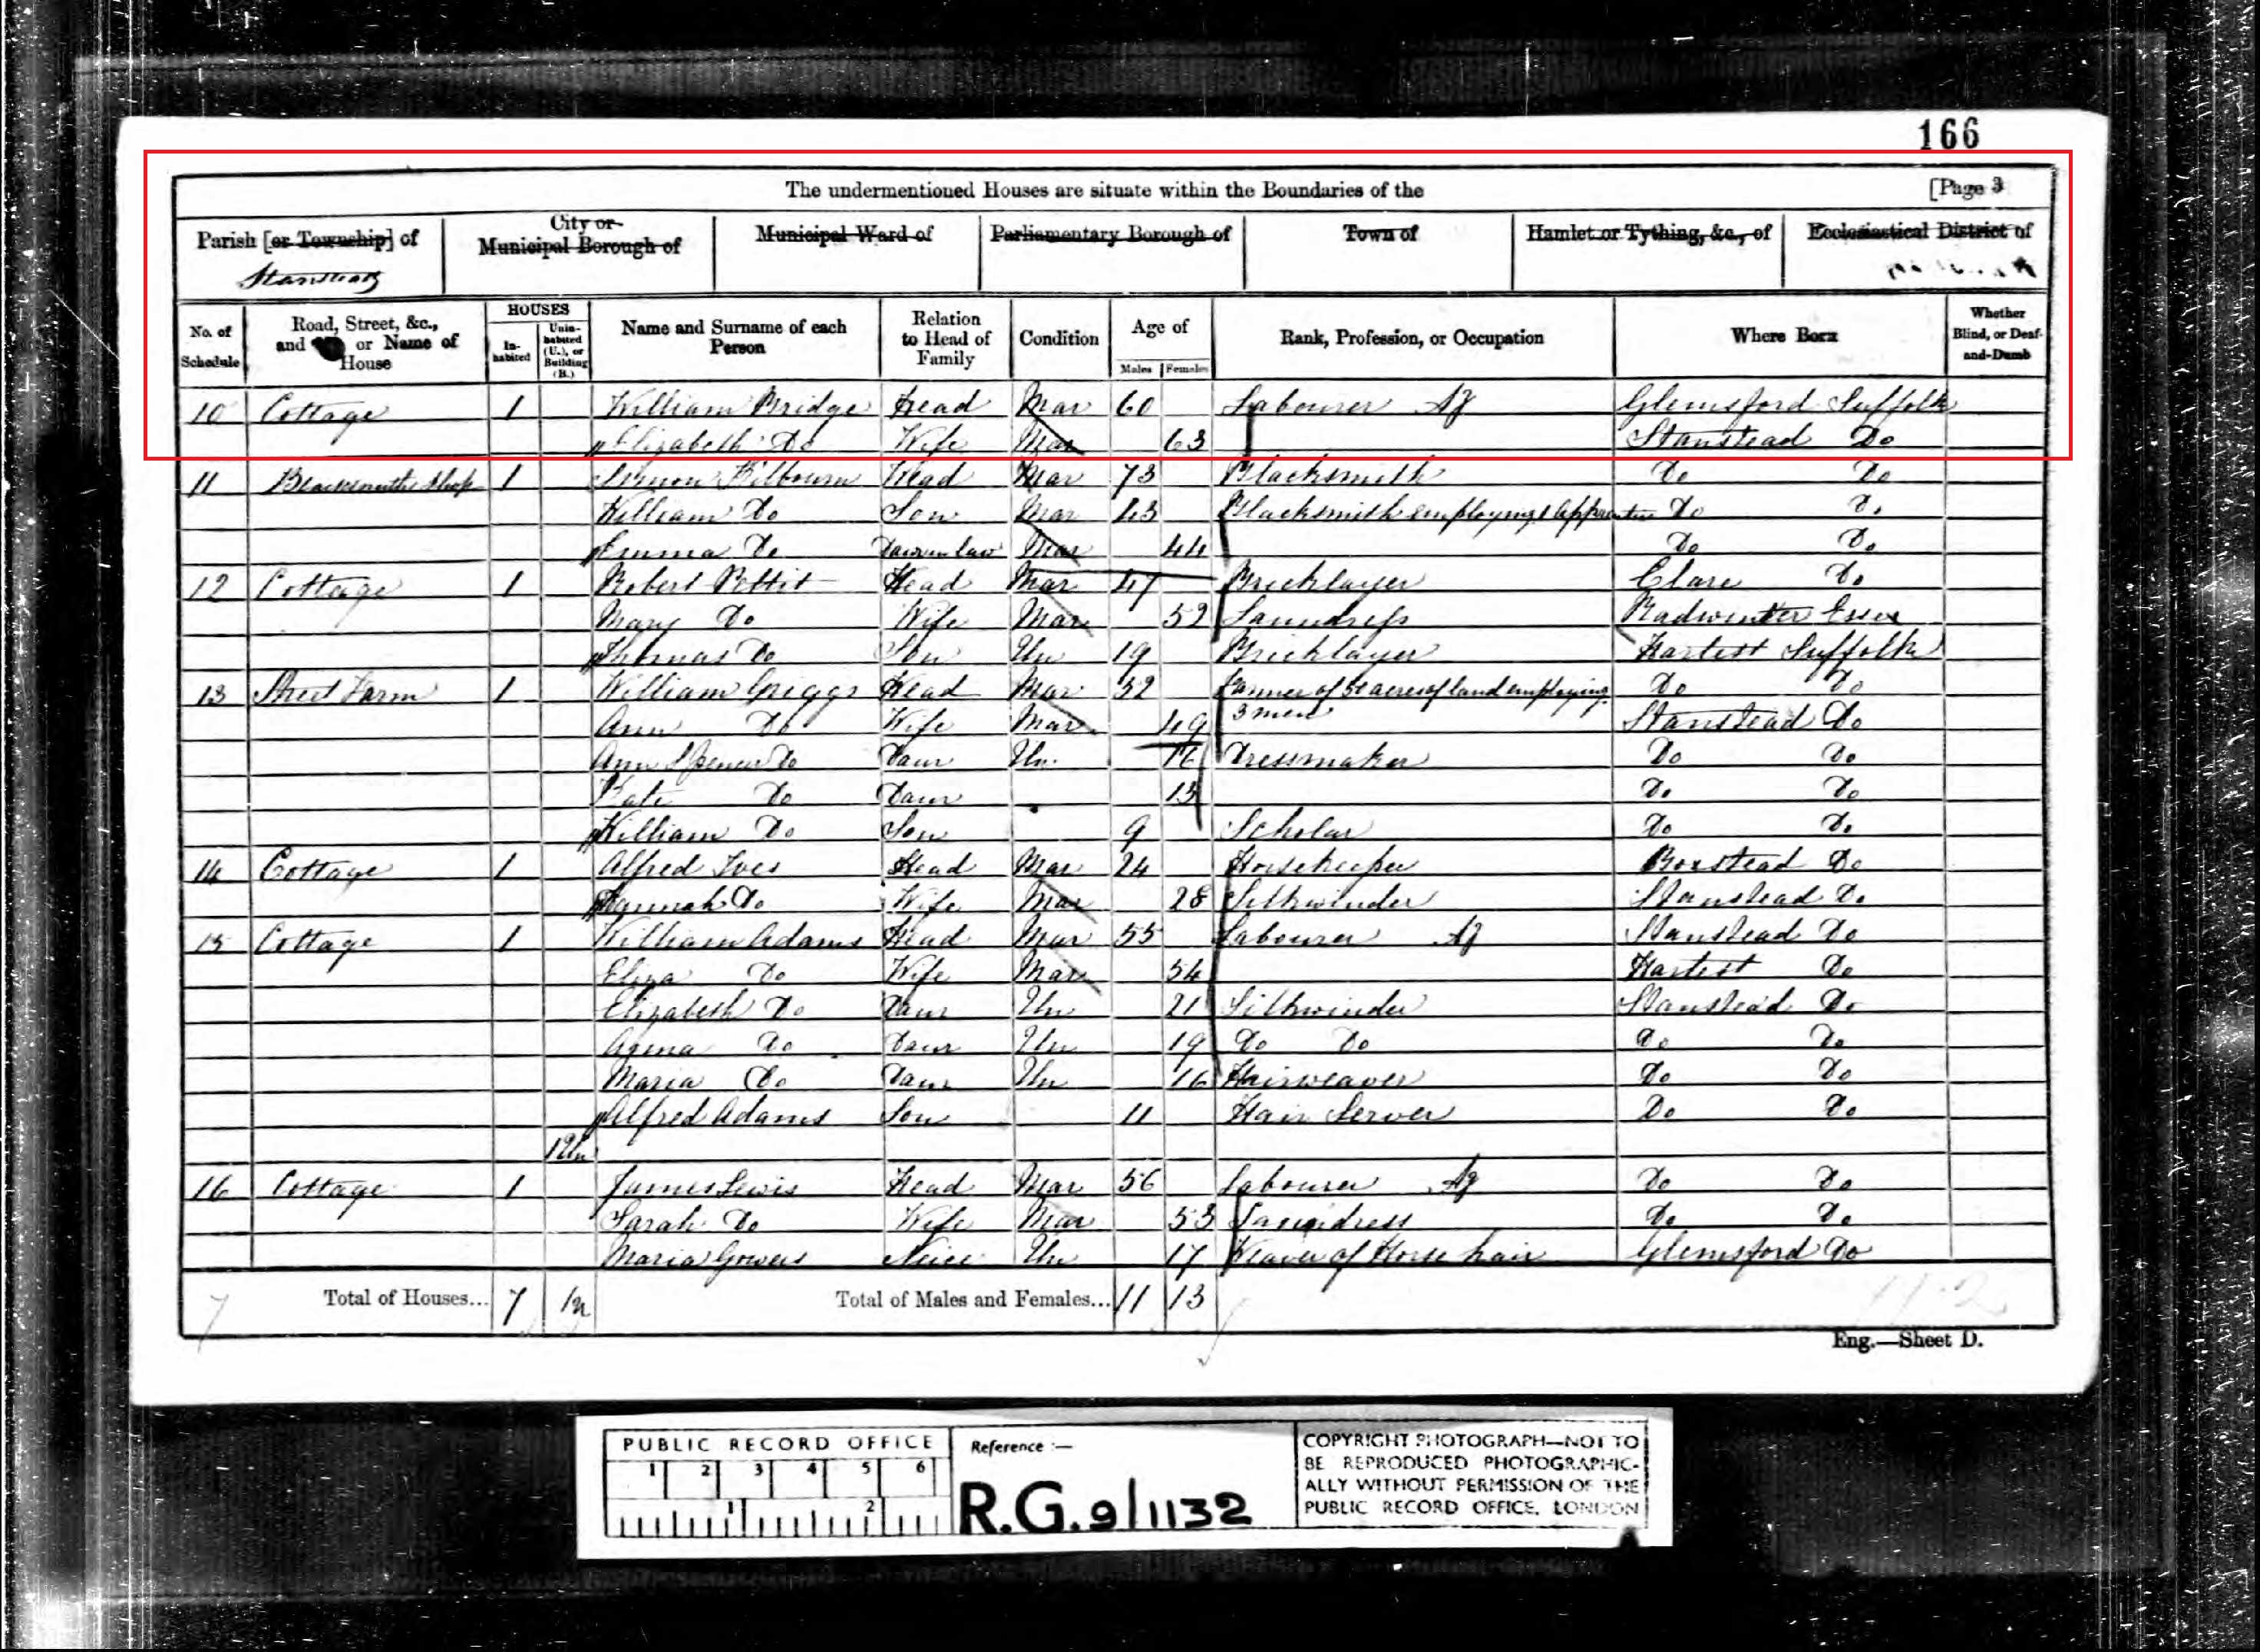 166
The undermentioned Houses are situate within the Boundaries of the [Page 3
Parish [or Township] of City or Municipal Borough of Municipal Ward of Parliamentary Borough of Town of Hamlet or Tything, &c., of Ecclesiastical District of
Stanstead
No. of Schedule Road, Street, &c., and or Name of House HOUSES Inhabited Uninhabited (U.), or Building (B.) Name and Surname of each Person Relation to Head of Family Condition Age of Males Females Rank, Profession, or Occupation Where Born Whether Blind, or Deaf-and-Dumb
10 Cottage 1 William Bridge Head Mar 60 Labourer Ag Glemsford Suffolk
Elizabeth Do Wife Mar 63 Stanstead Do
11 Blacksmiths Shop 1 Simon Kilbourn Head Mar 73 Blacksmith Do Do
William Do Son Mar 43 Blacksmith employing 1 apprentice Do Do
Emma Do Daur in law Mar 44 Do Do
12 Cottage 1 Robert Pettit Head Mar 47 Bricklayer Clare Do
Mary Do Wife Mar 52 Laundress Radwinter Essex
Thomas Do Son Un 19 Bricklayer Hartest Suffolk
13 Street Farm 1 William Griggs Head Mar 52 Farmer of acres of land employing 3 men Do Do
Ann Do Wife Mar 49 Stanstead Do
Ann Spencer Do Daur Un. 16 Dressmaker Do Do
Kate Do Daur 13 Do Do
William Do Son 9 Scholar Do Do
14 Cottage 1 Alfred Ives Head Mar 24 Horsekeeper Boxstead Do
Hannah Do Wife Mar 28 Silkwinder Stanstead Do
15 Cottage 1 William Adams Head Mar 55 Labourer Ag Stanstead Do
Eliza Do Wife Mar 54 Hartest Do
Elizabeth Do Daur Un 21 Silkwinder Stanstead Do
Do Daur Un 19 Do Do Do Do
Maria Do Daur Un 16 Hairweaver Do Do
Alfred Adams Son 11 Hair Server Do Do
1 Un
16 Cottage 1 James Lewis Head Mar 56 Labourer Ag Do Do
Sarah Do Wife Mar 53 Laundress Do Do
Maria Gowers Neice Un 17 Weaver of Horse hair Glemsford Do
7 Total of Houses... 7 1 Total of Males and Females... 11 13
Eng.—Sheet D.
PUBLIC RECORD OFFICE
1 2 3 4 5 6
1 2
Reference :—
R.G. 9/1132
COPYRIGHT PHOTOGRAPH—NOT TO
BE REPRODUCED PHOTOGRAPHIC-
ALLY WITHOUT PERMISSION OF THE
PUBLIC RECORD OFFICE, LONDON